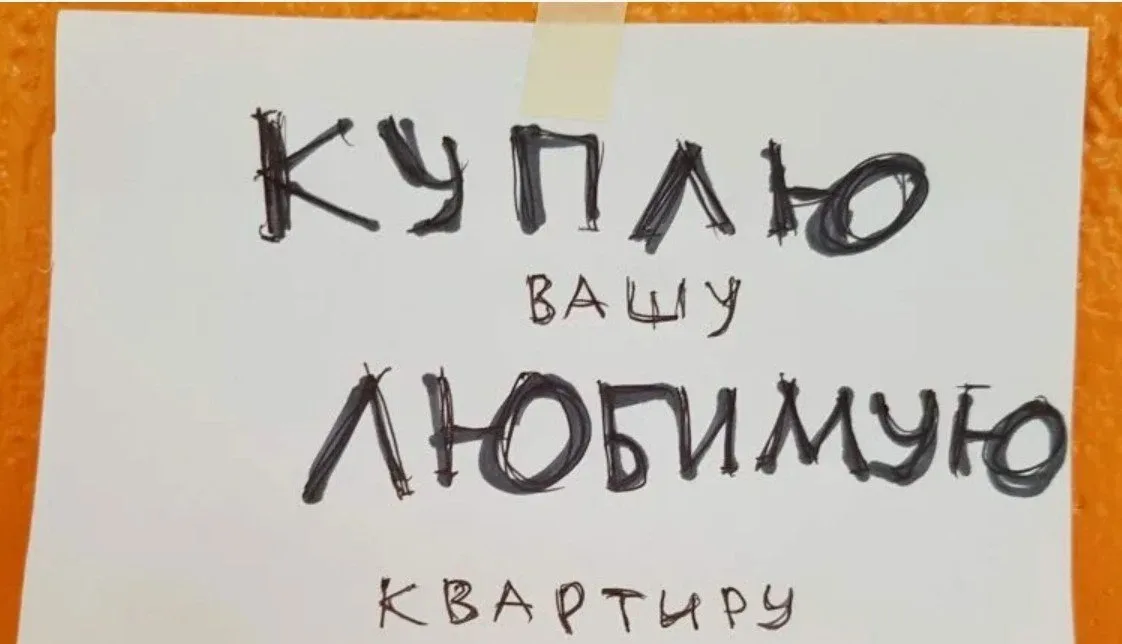 КУПЛЮ
ВАШУ
ЛЮБИМУЮ
КВАРТИРУ